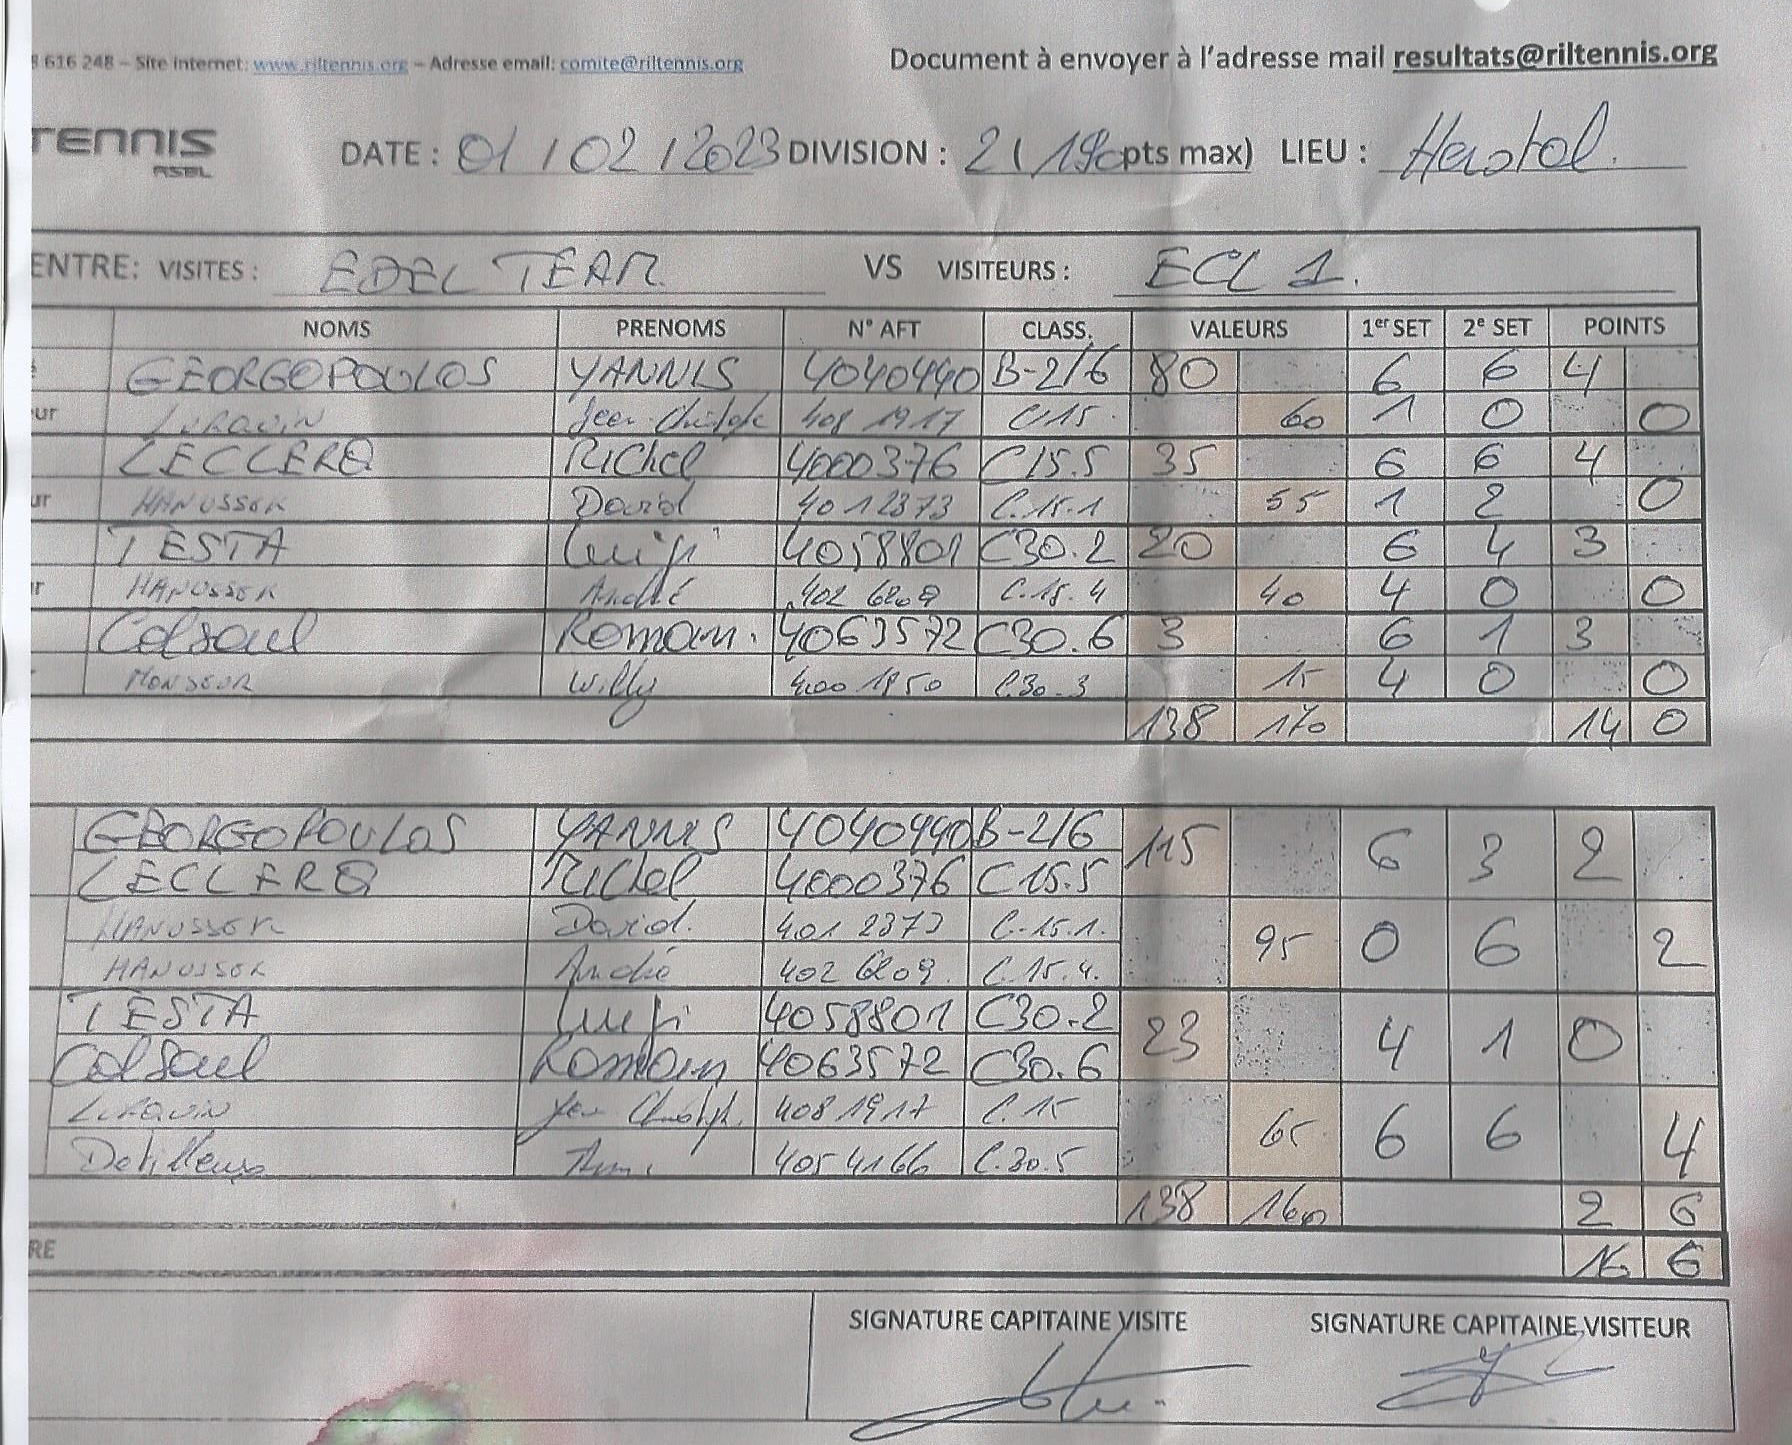 8 616 248 – Site internet: www.riltennis.org – Adresse email: comite@riltennis.org
Document à envoyer à l'adresse mail resultats@riltennis.org
TENNIS
ASBL
DATE : 01 / 02 / 2023 DIVISION : 2 ( 190 pts max) LIEU : Herstal.
ENTRE: VISITES : EDEL TEAM VS VISITEURS : ECL 1.
NOMS PRENOMS N° AFT CLASS. VALEURS 1er SET 2e SET POINTS
GEORGOPOULOS YANNIS 4040440 B-2/6 80 6 6 4
ur LURQUIN Jean-Christophe 408 1917 C15 60 1 0 0
LECLERQ Michel 4000376 C15.5 35 6 6 4
ur HANUSSEK David 4012373 C.15.1 55 1 2 0
TESTA Luigi 4058801 C30.2 20 6 4 3
r HANUSSEK André 402 6209 C.15.4 40 4 0 0
Colsoul Romain. 4063572 C30.6 3 6 1 3
MONSEUR Willy 400 1850 C.30.3 15 4 0 0
138 170 14 0
GEORGOPOULOS YANNIS 4040440 B-2/6 115 6 3 2
LECLERQ Michel 4000376 C15.5
HANUSSEK David. 401 2373 C.15.1. 95 0 6 2
HANUSSEK André 402 6209. C.15.4.
TESTA Luigi 4058801 C30.2 23 4 1 0
Colsoul Romain 4063572 C30.6
LURQUIN 408 1917 C.15 65 6 6 4
405 4166 C.30.5
138 160 2 6
RE 16 6
SIGNATURE CAPITAINE VISITE SIGNATURE CAPITAINE VISITEUR